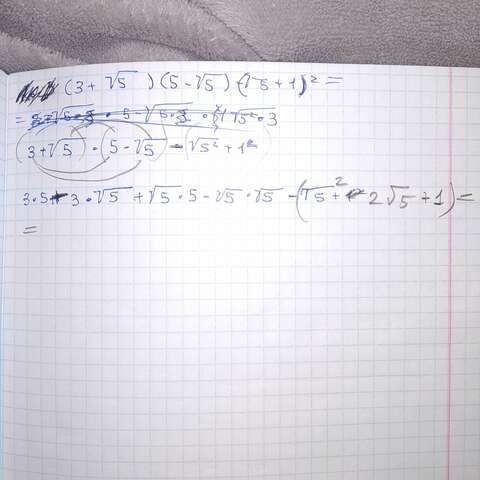 (3 + √5) (5 - √5) - (√5 + 1)² =
=
(3 + √5) · (5 - √5) - (√5² + 1²
3 · 5 - 3 · √5 + √5 · 5 - √5 · √5 - (√5² + 2√5 + 1) =
=